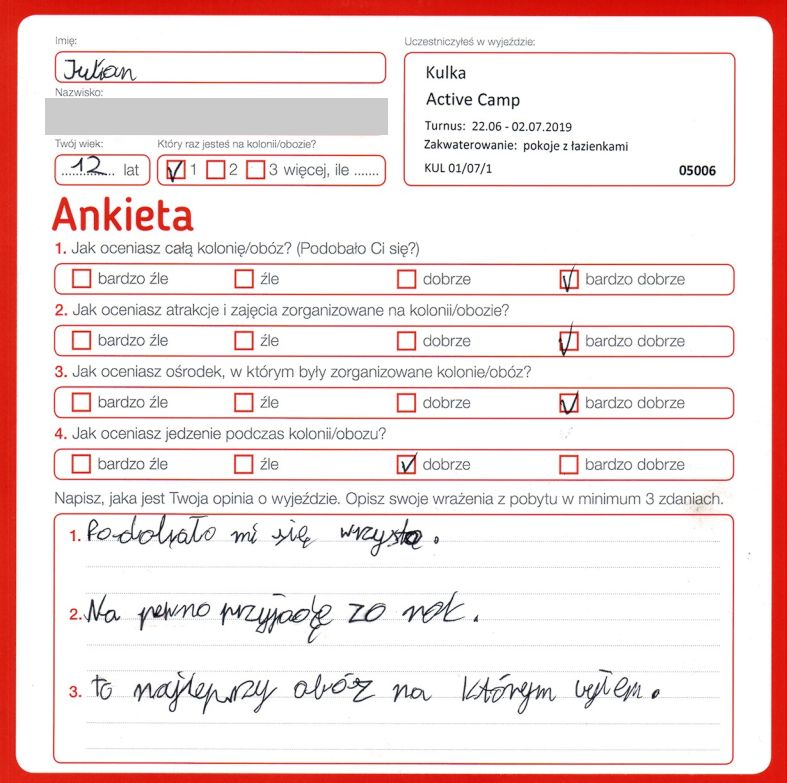 Imię:
Julian
Nazwisko:
Twój wiek:
12 lat
Który raz jesteś na kolonii/obozie?
1 2 3 więcej, ile .......
Uczestniczyłeś w wyjeździe:
Kulka
Active Camp
Turnus: 22.06 - 02.07.2019
Zakwaterowanie: pokoje z łazienkami
KUL 01/07/1 05006
Ankieta
1. Jak oceniasz całą kolonię/obóz? (Podobało Ci się?)
bardzo źle źle dobrze bardzo dobrze
2. Jak oceniasz atrakcje i zajęcia zorganizowane na kolonii/obozie?
bardzo źle źle dobrze bardzo dobrze
3. Jak oceniasz ośrodek, w którym były zorganizowane kolonie/obóz?
bardzo źle źle dobrze bardzo dobrze
4. Jak oceniasz jedzenie podczas kolonii/obozu?
bardzo źle źle dobrze bardzo dobrze
Napisz, jaka jest Twoja opinia o wyjeździe. Opisz swoje wrażenia z pobytu w minimum 3 zdaniach.
1. Podobało mi się
2. Na pewno przyjadę za rok.
3. to najlepszy obóz na którym byłem.